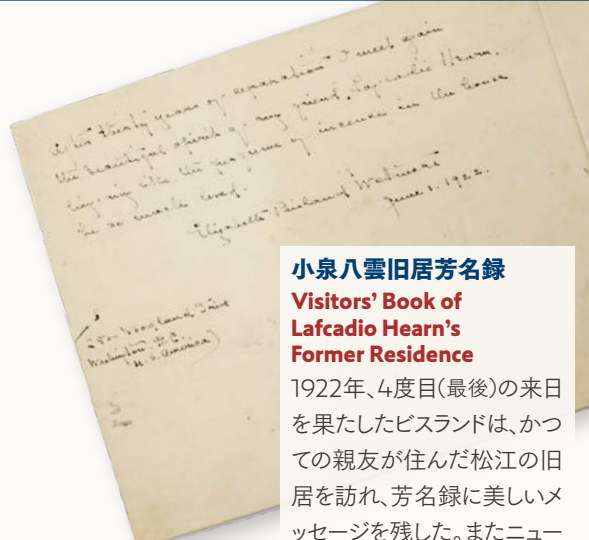 After thirty years of separation I meet again
the beautiful spirit of my friend, Lafcadio Hearn,
lingering like the perfume of incense in the house
he so much loved.
Elizabeth Bisland Wetmore
June 1. 1922.
Woodland Drive
Washington. D.C.
U.S. America)
小泉八雲旧居芳名録
Visitors’ Book of
Lafcadio Hearn’s
Former Residence
1922年、4度目(最後)の来日
を果たしたビスランドは、かつ
ての親友が住んだ松江の旧
居を訪れ、芳名録に美しいメ
ッセージを残した。またニュー